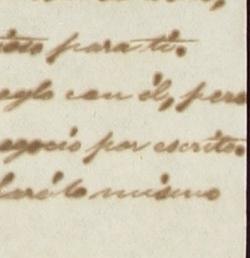 para ti.
eglo con él, pero
egocio por escrito.
lará lo mismo